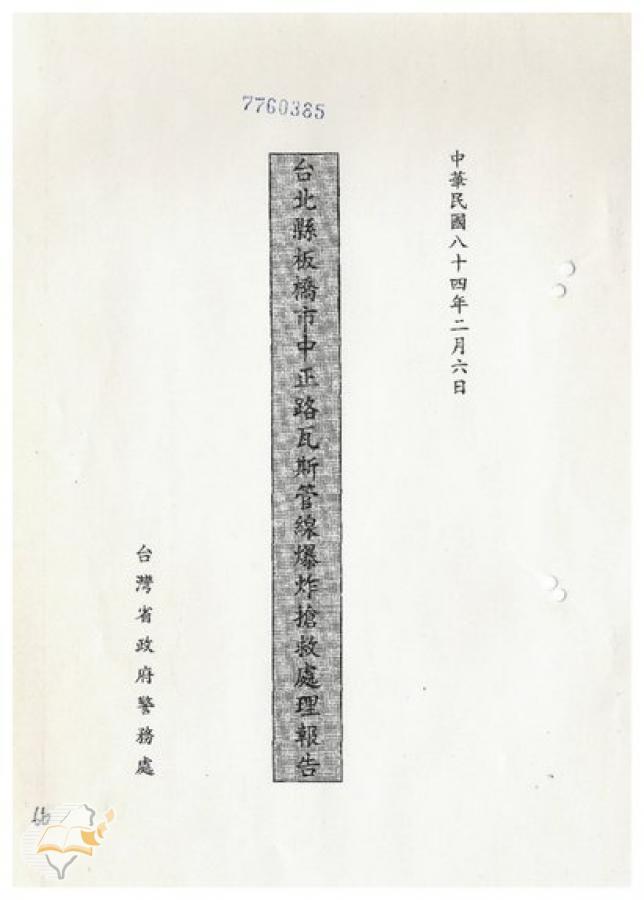 7760385
中華民國八十四年二月六日
台北縣板橋市中正路瓦斯管線爆炸搶救處理報告
台灣省政府警務處